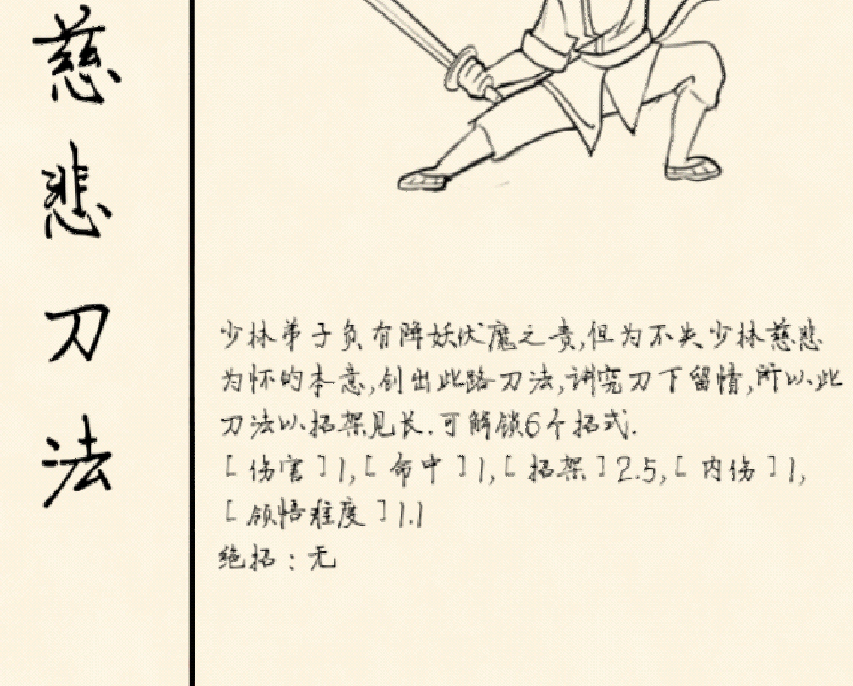 慈悲刀法
少林弟子负有降妖伏魔之责,但为不失少林慈悲
为怀的本意,创出此路刀法,讲究刀下留情,所以此
刀法以招架见长.可解锁6个招式.
[伤害]1,[命中]1,[招架]2.5,[内伤]1,
[领悟难度]1.1
绝招:无